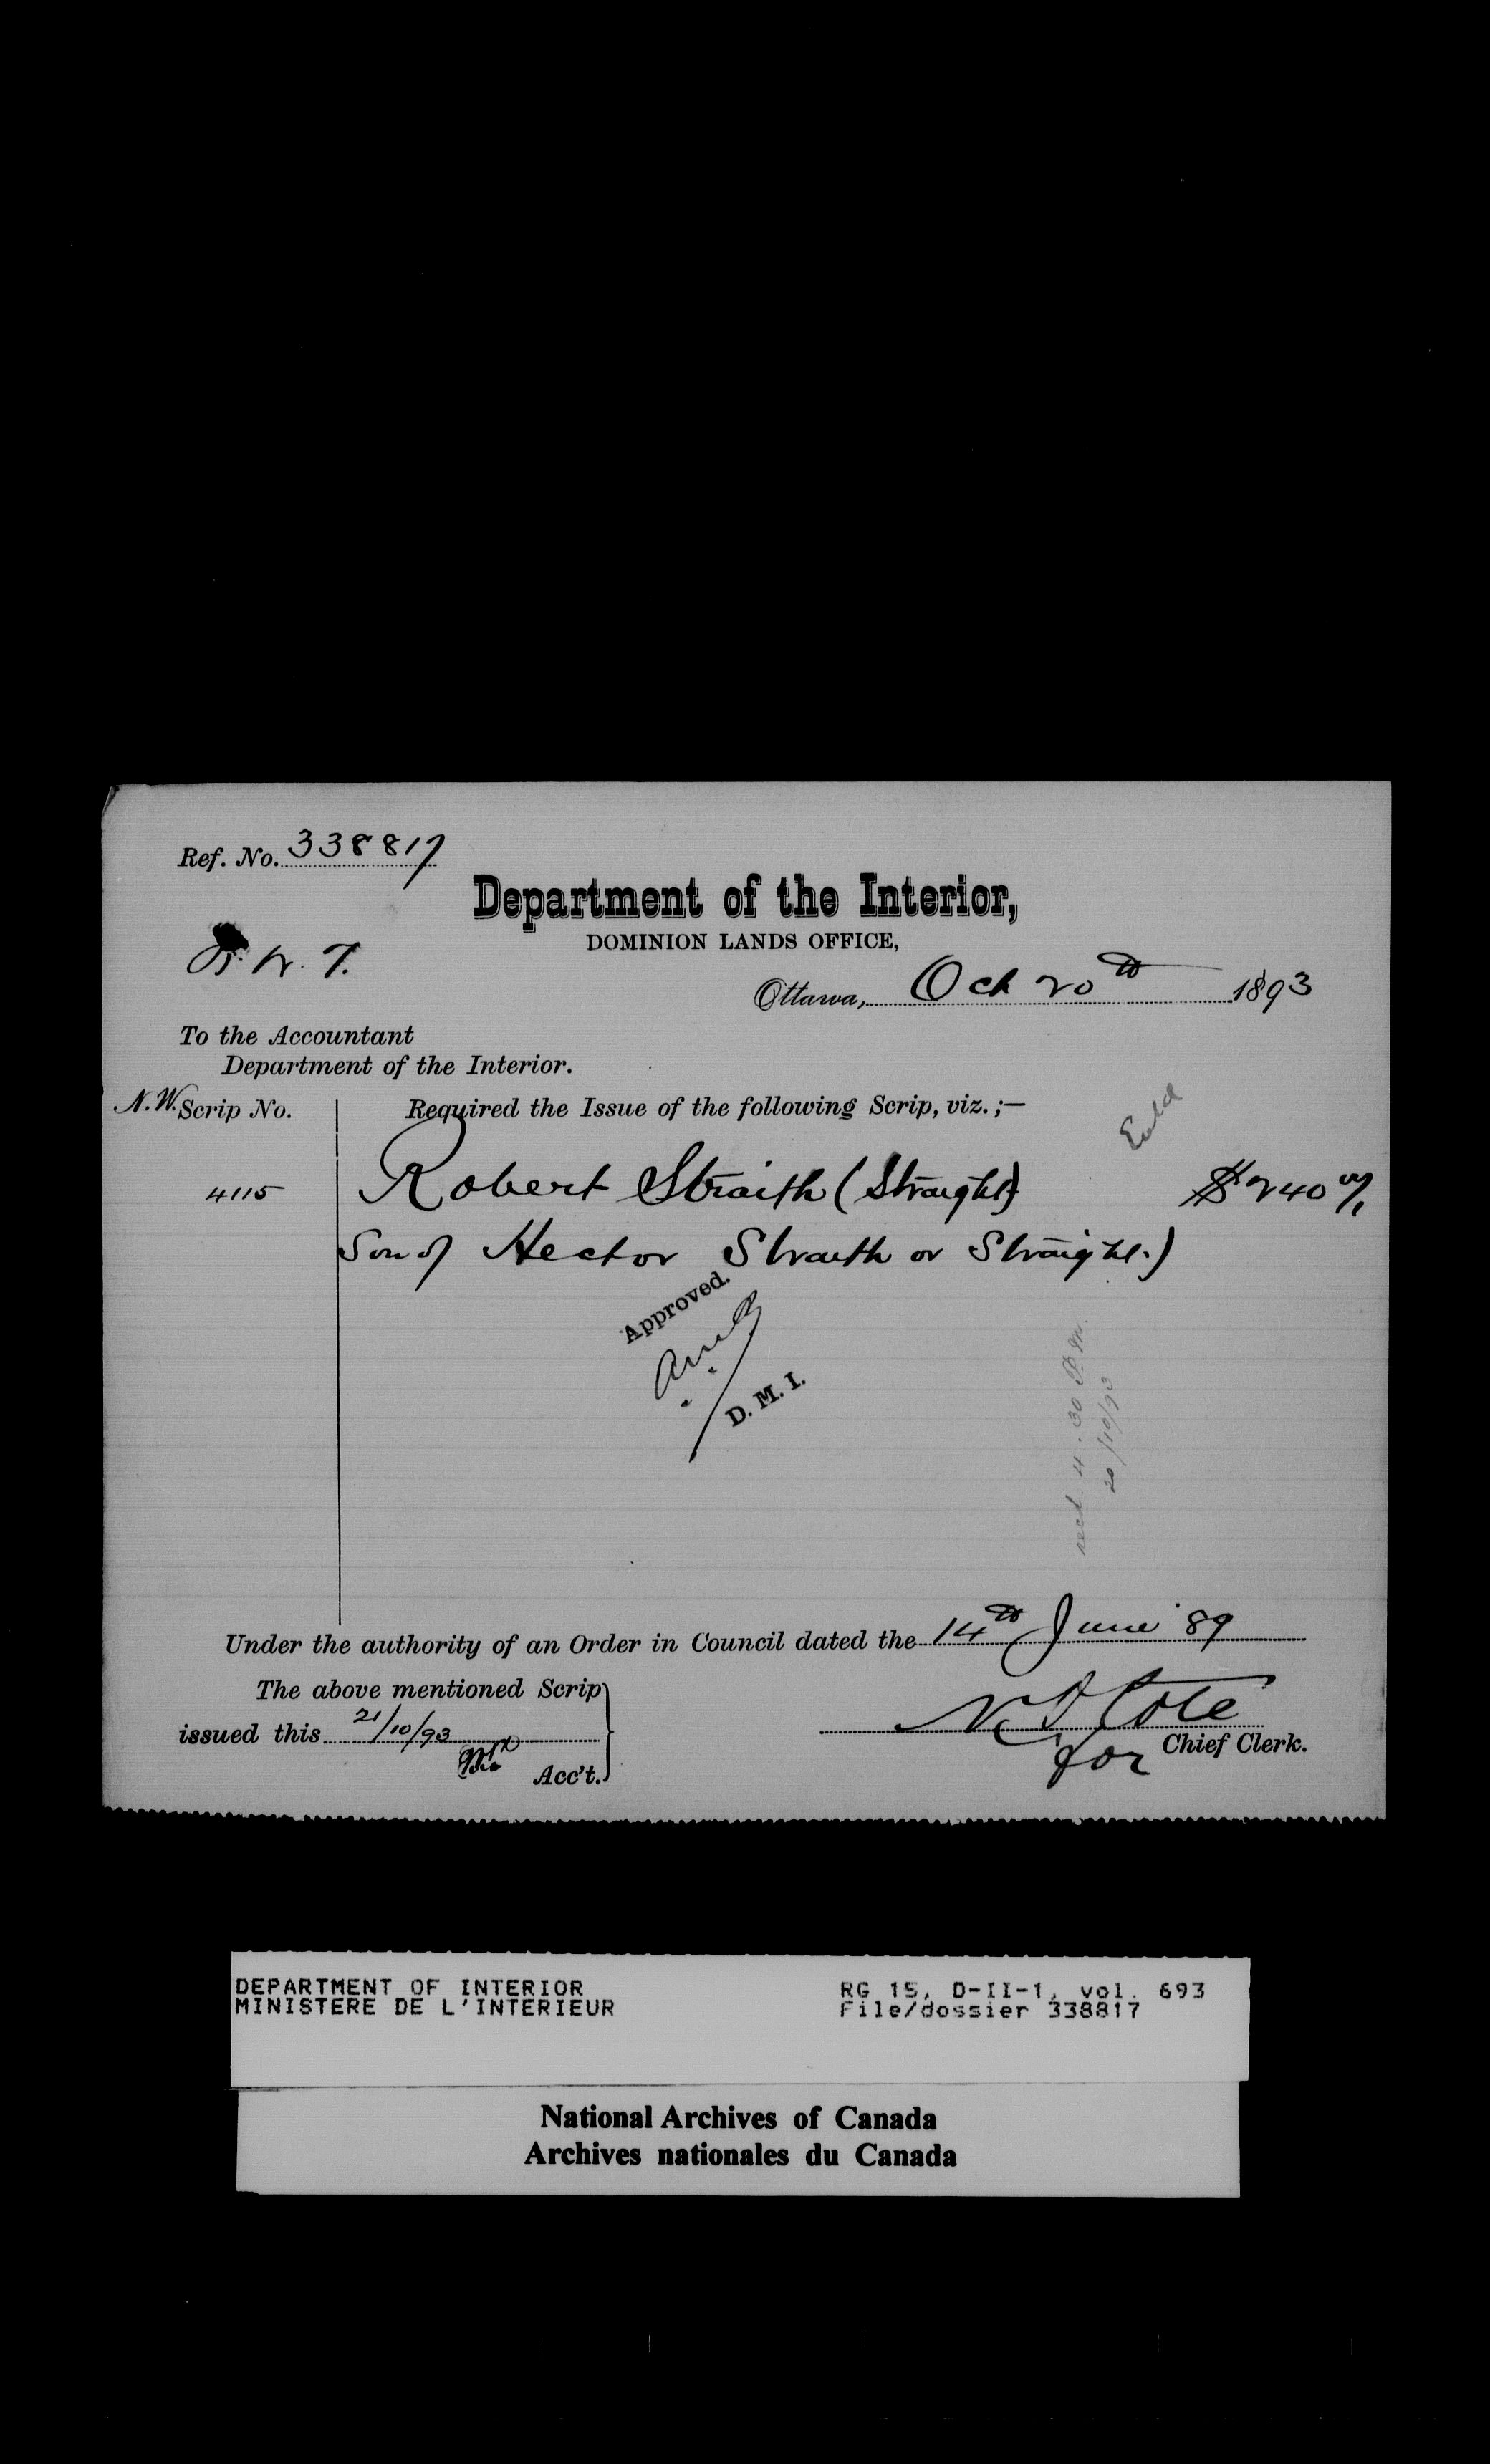 Ref. No. 338817
Department of the Interior,
DOMINION LANDS OFFICE,
N. W. T.
Ottawa, Oct 20th 1893
To the Accountant
Department of the Interior.
N.W. Scrip No.
Required the Issue of the following Scrip, viz. ;—
Entd
4115
Robert Straith (Straight)
$240 00/
Son of Hector Straith or Straight.)
Approved.
D. M. I.
recd 4.30 P.M.
20/10/93
Under the authority of an Order in Council dated the 14th June '89
The above mentioned Scrip
issued this 21/10/93
Acc't.
N. O. Cote
for Chief Clerk.
DEPARTMENT OF INTERIOR
MINISTERE DE L'INTERIEUR
RG 15, D-II-1, vol. 693
File/dossier 338817
National Archives of Canada
Archives nationales du Canada